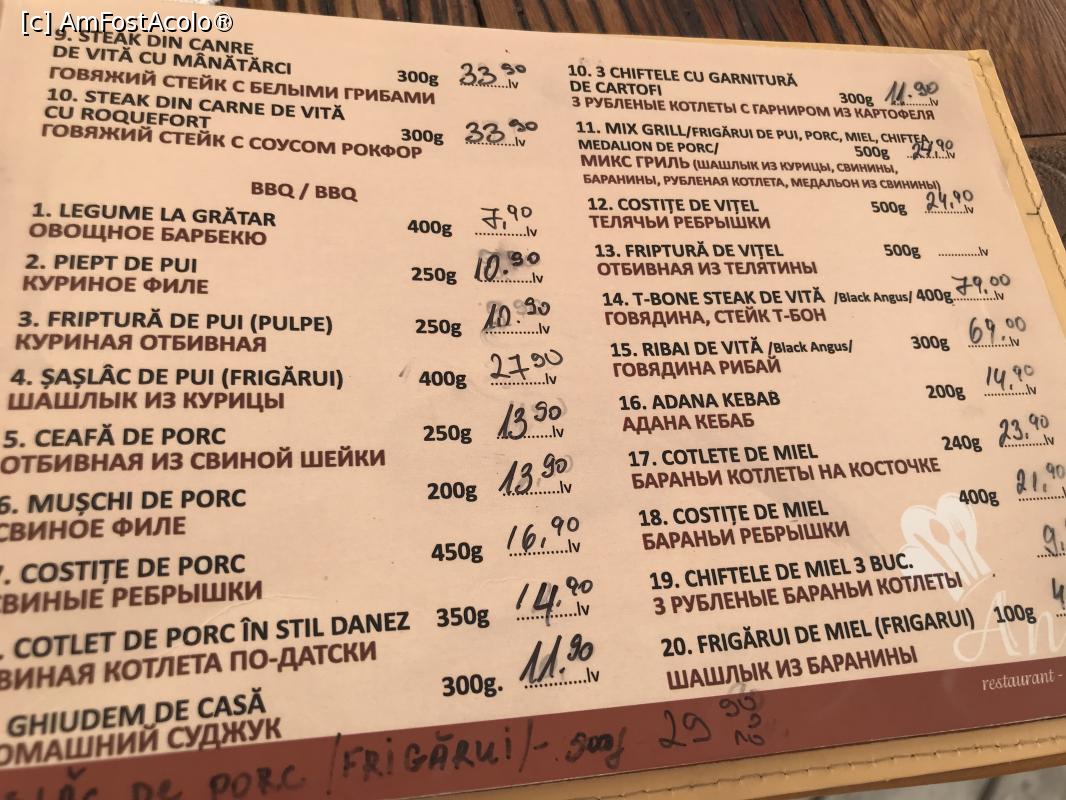 [c] AmFostAcolo®
9. STEAK DIN CANRE
DE VITĂ CU MÂNĂTĂRCI 300g 33.90 lv
ГОВЯЖИЙ СТЕЙК С БЕЛЫМИ ГРИБАМИ
10. STEAK DIN CARNE DE VITĂ
CU ROQUEFORT 300g 33.90 lv
ГОВЯЖИЙ СТЕЙК С СОУСОМ РОКФОР
BBQ / BBQ
1. LEGUME LA GRĂTAR 400g 7,90 lv
ОВОЩНОЕ БАРБЕКЮ
2. PIEPT DE PUI 250g 10.90 lv
КУРИНОЕ ФИЛЕ
3. FRIPTURĂ DE PUI (PULPE) 250g 10.90 lv
КУРИНАЯ ОТБИВНАЯ
4. ȘAȘLÂC DE PUI (FRIGĂRUI) 400g 27.90 lv
ШАШЛЫК ИЗ КУРИЦЫ
5. CEAFĂ DE PORC 250g 13.90 lv
ОТБИВНАЯ ИЗ СВИНОЙ ШЕЙКИ
6. MUȘCHI DE PORC 200g 13.90 lv
СВИНОЕ ФИЛЕ
7. COSTIȚE DE PORC 450g 16,90 lv
СВИНЫЕ РЕБРЫШКИ
. COTLET DE PORC ÎN STIL DANEZ 350g 14.90 lv
ВИНАЯ КОТЛЕТА ПО-ДАТСКИ
GHIUDEM DE CASĂ 300g. 11.90 lv
ОМАШНИЙ СУДЖУК
DE PORC /FRIGĂRUI/- 500g 29
10. 3 CHIFTELE CU GARNITURĂ
DE CARTOFI 300g 11.90 lv
3 РУБЛЕНЫЕ КОТЛЕТЫ С ГАРНИРОМ ИЗ КАРТОФЕЛЯ
11. MIX GRILL/FRIGĂRUI DE PUI, PORC, MIEL, CHIFTEA,
MEDALION DE PORC/ 500g 24,90 lv
МИКС ГРИЛЬ (ШАШЛЫК ИЗ КУРИЦЫ, СВИНИНЫ,
БАРАНИНЫ, РУБЛЕНАЯ КОТЛЕТА, МЕДАЛЬОН ИЗ СВИНИНЫ)
12. COSTIȚE DE VIȚEL 500g 24.90 lv
ТЕЛЯЧЬИ РЕБРЫШКИ
13. FRIPTURĂ DE VIȚEL 500g ............lv
ОТБИВНАЯ ИЗ ТЕЛЯТИНЫ
14. T-BONE STEAK DE VITĂ /Black Angus/ 400g 79.00 lv
ГОВЯДИНА, СТЕЙК Т-БОН
15. RIBAI DE VITĂ /Black Angus/ 300g 69.00 lv
ГОВЯДИНА РИБАЙ
16. ADANA KEBAB 200g 14.90 lv
АДАНА КЕБАБ
17. COTLETE DE MIEL 240g 23.90 lv
БАРАНЬИ КОТЛЕТЫ НА КОСТОЧКЕ
18. COSTIȚE DE MIEL 400g 21,90
БАРАНЬИ РЕБРЫШКИ
19. CHIFTELE DE MIEL 3 BUC. 9.
3 РУБЛЕНЫЕ БАРАНЬИ КОТЛЕТЫ
20. FRIGĂRUI DE MIEL (FRIGARUI) 100g 4
ШАШЛЫК ИЗ БАРАНИНЫ
An
restaurant -